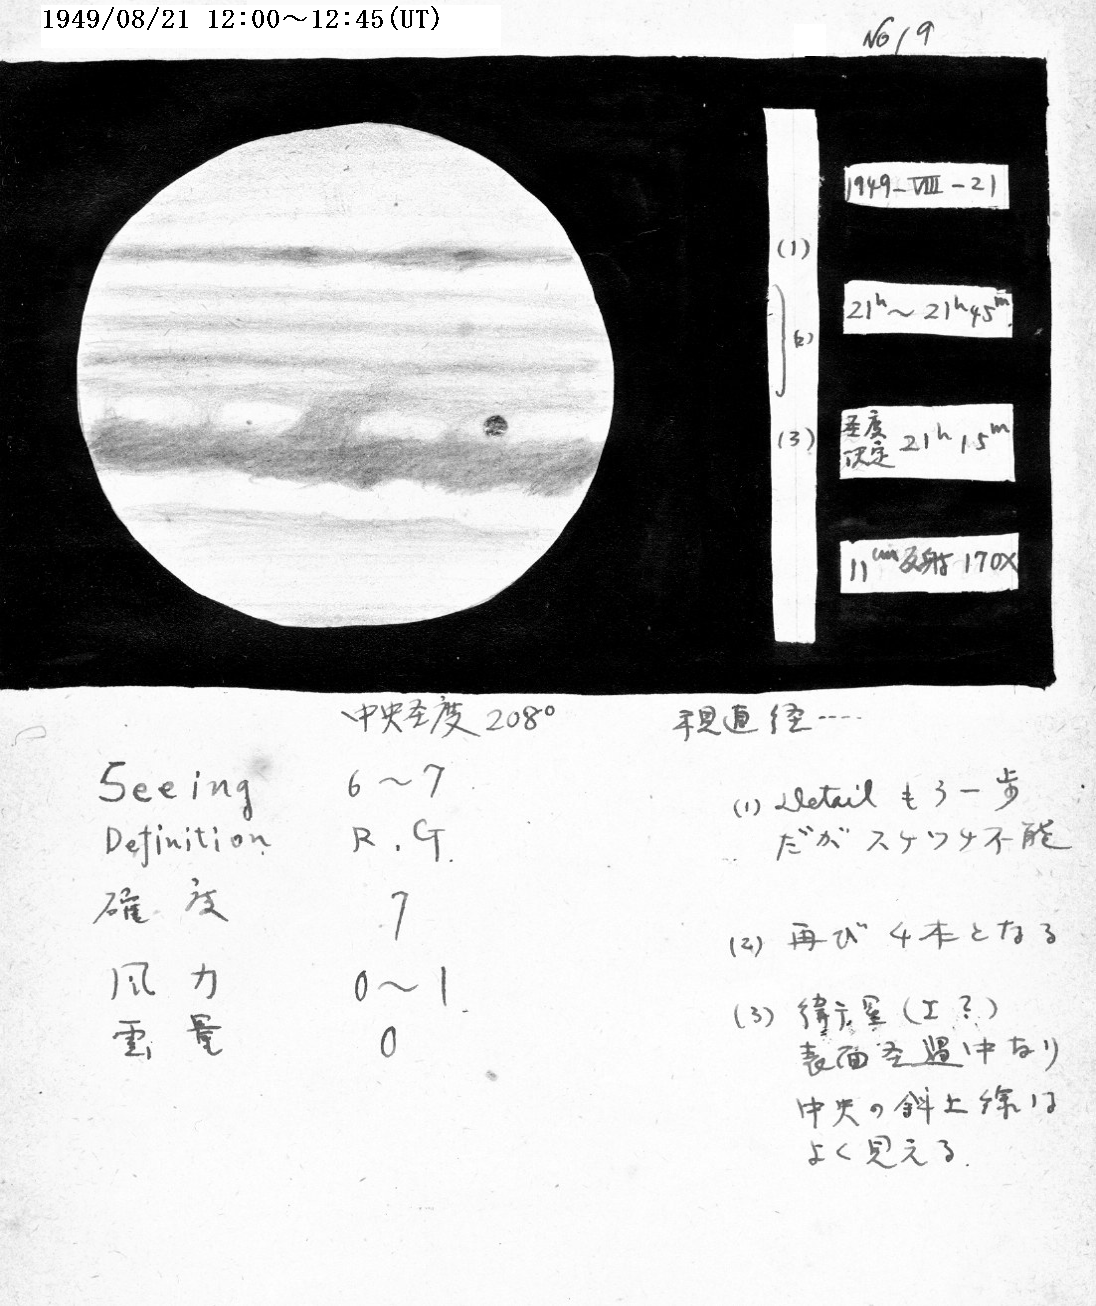 1949/08/21 12:00～12:45(UT)
No, 9
1949-VIII-21
(1)
21h～21h45m
(2)
(3)
圣度
決定 21h15m
11cm反射 170X
中央圣度 208°
視直径‥‥
Seeing 6～7
Definition R.G.
確度 7
風力 0～1
雲量 0
(1) Detail もう一歩
だがスケッチ不能
(2) 再び4本となる
(3) 衛星(I?)
表面圣過中なり
中央の斜上線は
よく見える.